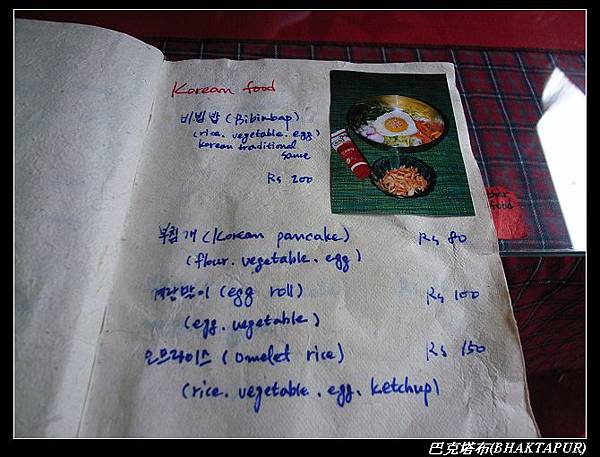 Korean food
비빔밥 (Bibinbap)
(rice. vegetable. egg)
Korean traditional
Rs 200
부침개 (Korean pancake) Rs 80
(flour. vegetable. egg)
계란말이 (egg roll) Rs 100
(egg. vegetable)
오므라이스 (omelet rice) Rs 150
(rice. vegetable. egg. ketchup)
food
巴克塔布(BHAKTAPUR)